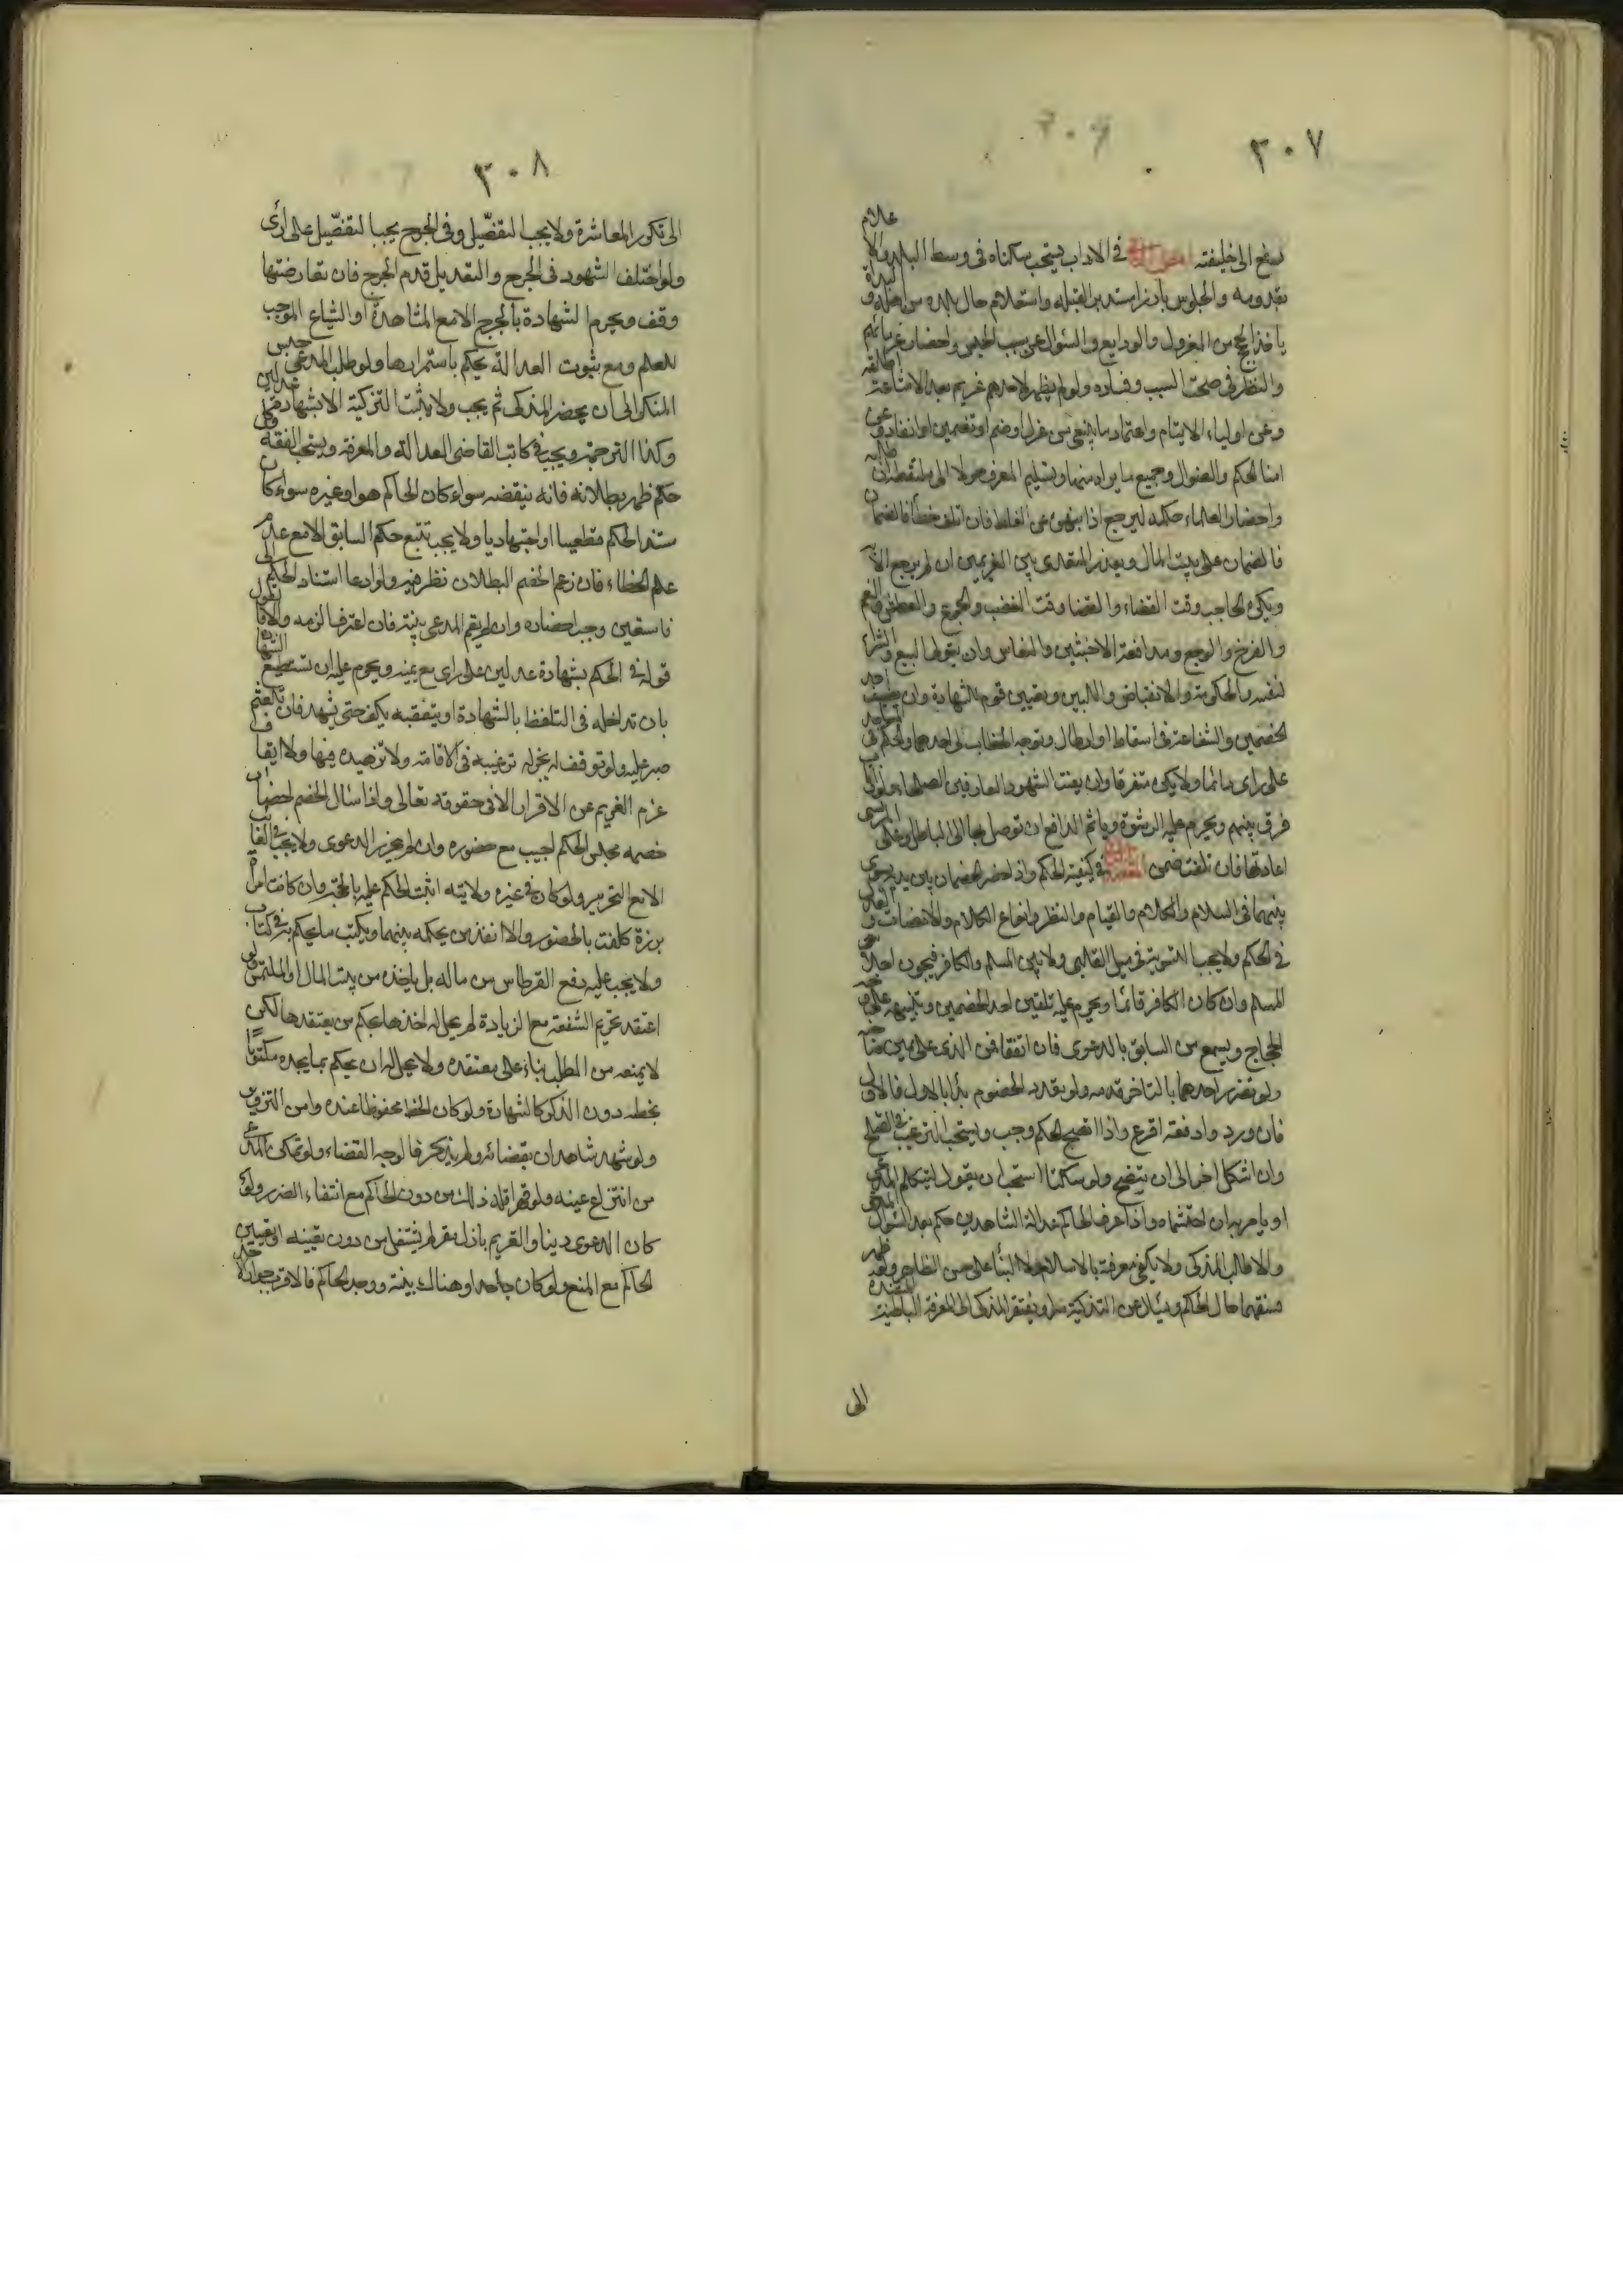 ٣٠٧
يدفع الى خليفته في الاداب يستحب سكناه في وسط البلد والاعلام
بقدومه والجلوس بارزا مستدبر القبلة واستعلام حال بلده من اهله و
ياخذ الحجج من المعزول والودايع والسئوال عن سبب الحبس واحضار غرمائهم
والنظر في صحت السبب وفساده ولو لم يظهر لاحدهم غريم بعد الاشاعة اطلقه
وعن اولياء الايتام واعتماد ما ينبغي من عزل او ضم او تضمين او انفاذ وعن
امنا الحكم والضوال وجميع ما يراه منها وتسليم المعرف حولا الى ملتقطه ان طلبه
واحضار العلماء حكمه ليرجع اذا نبهوه عن الغلط فان اتلف خطأ
فالضمان على بيت المال ويعزر المتعدي من الغريمين ان لم يرجع الا به
ويكره الحاجب وقت القضاء والقضا وقت الغضب والجوع والعطش والغم
والفرح والوجع ومدافعة الاخبثين والنعاس وان يتولى البيع والشراء
لنفسه والحكومة والانقباض واللين وتعيين قوم للشهادة وان يضيف احد
الخصمين والشفاعة في اسقاط او ابطال وتوجه الخطاب الى احدهما والحكم في المساجد
على راى دائما ولا يكره متفرقا وان يعنت الشهود العارفين الصلحاء ولو ارتاب
فرق بينهم ويحرم عليه الرشوة وياثم الدافع ان توصل بها الى الباطل وعلى المرتشي
اعادتها فان تلفت ضمن في كيفية الحكم واذا حضر الخصمان بين يديه سوى
بينهما في السلام والكلام والقيام والنظر وانواع الاكرام والانصات والعدل
في الحكم ولا يجب التسوية في ميل القلبي ولا بين المسلم والكافر فيجوز اجلاس
المسلم وان كان الكافر قائما ويحرم عليه تلقين احد الخصمين وتنبيهه على وجه
الحجاج ويسمع من السابق بالدعوى فان اتفقا فمن الذى على يمين صاحبه
ولو تضرر احدهما بالتاخر قدمه ولو تعدد الخصوم بدأ بالاول فالاول
فان ورد وا دفعة اقرع واذا اتضح الحكم وجب ويستحب الترغيب في الصلح
وان اشكل اخر الى ان يتضح ولو سكتا استحب ان يقول ليتكلم المدعي
او يامر به ان احتشماه واذا عرف الحاكم عدالة الشاهدين حكم بعد السئوال
والا طالب المزكى ولا يكفي معرفته بالاسلام ولا البناء على حسن الظاهر ولو ظهر
فسقهما حال الحكم ويسئل عن التزكية سرا ويفتقر المزكى الى المعرفة الباطنية
الى
٣٠٨
الى تكرر المعاشرة ولا يجب التفصيل وفى الجرح يجب التفصيل على راى
ولو اختلف الشهود فى الجرح والتعديل قدم الجرح فان تعارضتها
وقف ويحرم الشهادة بالجرح الا مع المشاهدة او الشياع الموجب
للعلم ومع ثبوت العدالة يحكم باستمرارها ولو طلب المدعي حبس
المنكر الى ان يحضر المزكى ثم يجب ولا يثبت التزكية الا بشهادة عدلين
وكذا الترجمة ويجب في كاتب القاضى العدالة والمعرفة ويستحب الفقه وكل
حكم ظهر بطلانه فانه ينقضه سواء كان الحاكم هو او غيره سواء كان
مستند الحكم قطعيا او اجتهاديا ولا يجب تتبع حكم السابق الا مع علم
علم الخطاء فان زعم الخصم البطلان نظر فيه ولو ادعا استناد الحكم الى
فاسقين وجب احضاره وان لم يقم المدعى بينة فان اعترف الزمه والا فالقول
قوله في الحكم بشهادة عدلين على راى مع يمينه ويحرم عليه ان
بان تداخله فى التلفظ بالشهادة او يتعقبه بكف حتى يشهد فان تلعثم
صبر عليه ولو توقف لم يجز له ترغيبه فى الاقامة ولا تزهيده فيها ولا ايقاف
عزم الغريم عن الاقرار الا فى حقوقه تعالى واذا سئال الخصم احضار
خصمه مجلس الحكم اجيب مع حضوره وان لم يحرر الدعوى ولا يجب في الغايب
الا مع التحرير ولو كان في غيره ولايته اثبت الحكم عليه بالحجة وان كانت امرأة
برزة كلفت بالحضور والا انفذ من يحكمه بينهما ويكتب ما يحكم به في كتاب
ولا يجب عليه دفع القرطاس من ماله بل ياخذه من بيت المال او الملتمس ولو
اعتقد تحريم الشفعة مع الزيادة لم يحل له اخذها بحكم من يعتقدها لكن
لا يمنعه من الطلب بناء على معتقده ولا يحل له ان يحكم بما يجده مكتوبا
بخطه دون الذكر كالشهادة ولو كان الخط محفوظا عنده وامن التزوير
ولو شهد شاهدان بقضائه ولم يذكر فالوجه القضاء ولو تمكن المدعي
من انتزاع عينه ولو قهرا فله ذلك من دون الحاكم مع انتفاء الضرر ولو
كان الدعوى دينا والغريم باذل مقر لم يستقل من دون تعيينه او تعيين
الحاكم مع المنع ولو كان جاحدا وهناك بينة ووجد الحاكم فالاقرب جواز